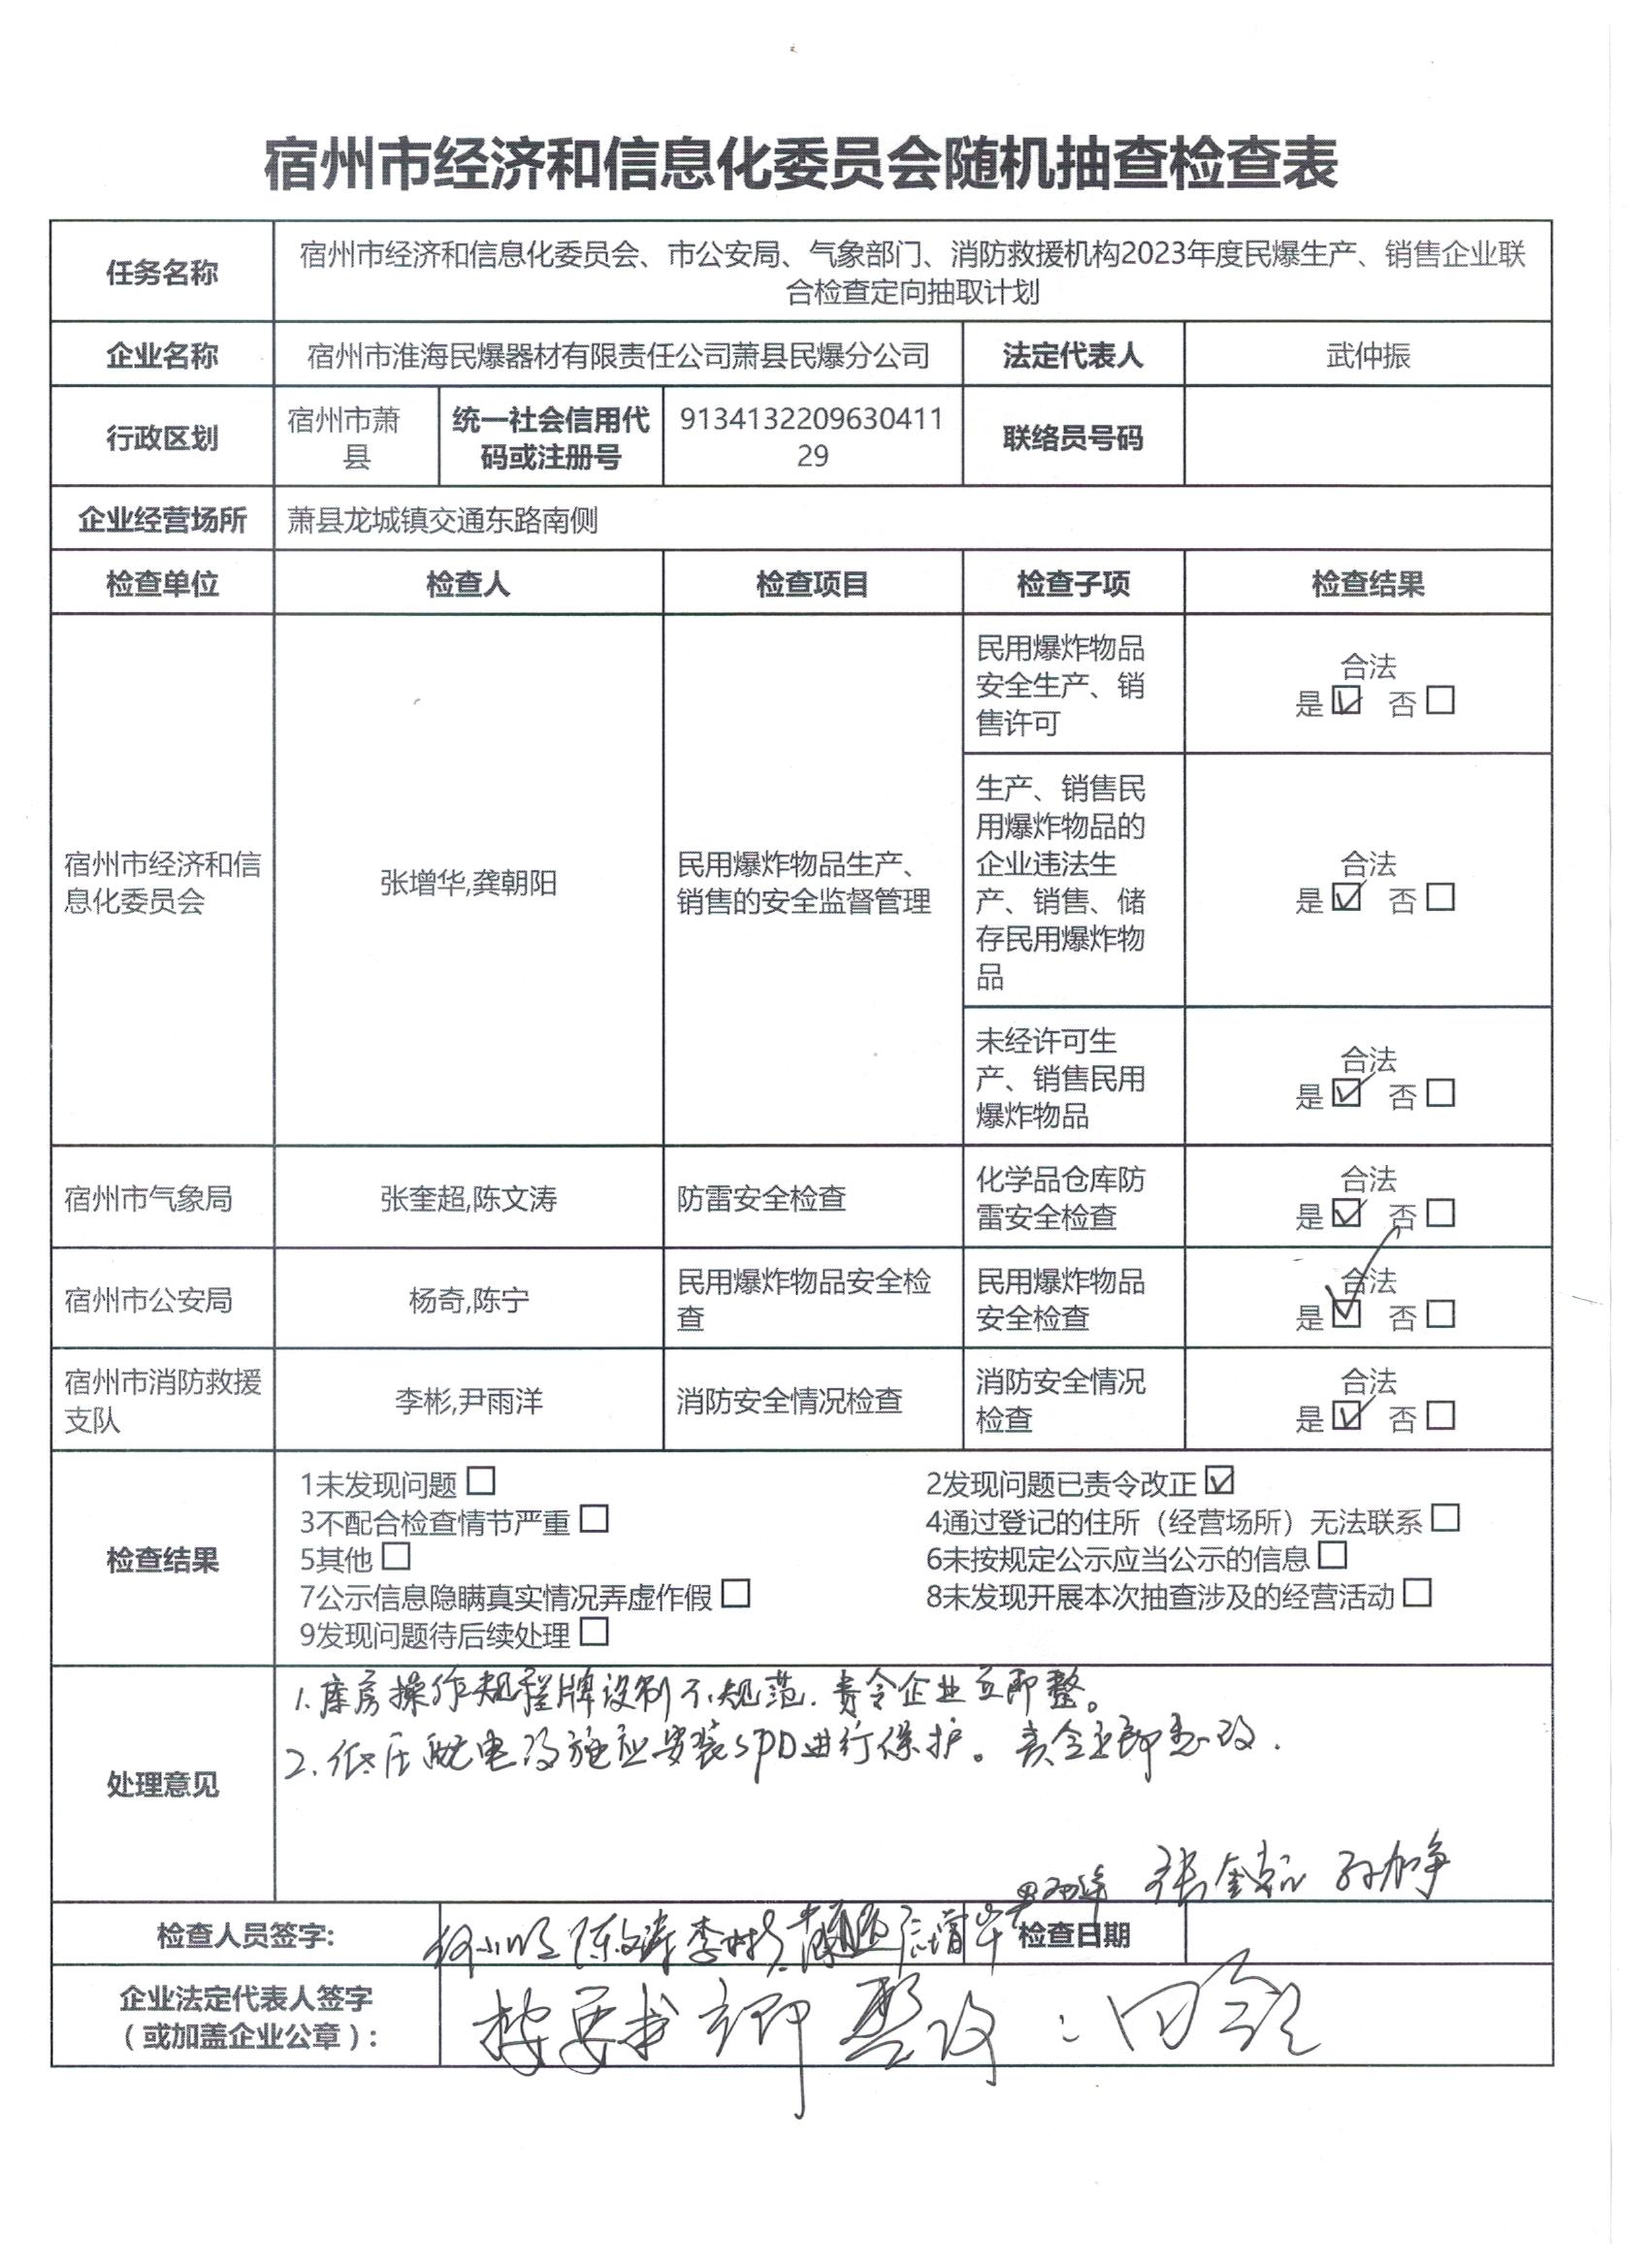 宿州市经济和信息化委员会随机抽查检查表
任务名称
宿州市经济和信息化委员会、市公安局、气象部门、消防救援机构2023年度民爆生产、销售企业联
合检查定向抽取计划
企业名称
宿州市淮海民爆器材有限责任公司萧县民爆分公司
法定代表人
武仲振
行政区划
宿州市萧
县
统一社会信用代
码或注册号
9134132209630411
29
联络员号码
企业经营场所
萧县龙城镇交通东路南侧
检查单位 检查人 检查项目 检查子项 检查结果
宿州市经济和信
息化委员会
张增华,龚朝阳
民用爆炸物品生产、
销售的安全监督管理
民用爆炸物品
安全生产、销
售许可
合法
是☑ 否☐
生产、销售民
用爆炸物品的
企业违法生
产、销售、储
存民用爆炸物
品
合法
是☑ 否☐
未经许可生
产、销售民用
爆炸物品
合法
是☑ 否☐
宿州市气象局
张奎超,陈文涛
防雷安全检查
化学品仓库防
雷安全检查
合法
是☑ 否☐
宿州市公安局
杨奇,陈宁
民用爆炸物品安全检
查
民用爆炸物品
安全检查
合法
是☑ 否☐
宿州市消防救援
支队
李彬,尹雨洋
消防安全情况检查
消防安全情况
检查
合法
是☑ 否☐
检查结果
1未发现问题☐ 2发现问题已责令改正☑
3不配合检查情节严重☐ 4通过登记的住所（经营场所）无法联系☐
5其他☐ 6未按规定公示应当公示的信息☐
7公示信息隐瞒真实情况弄虚作假☐ 8未发现开展本次抽查涉及的经营活动☐
9发现问题待后续处理☐
处理意见
1.库房操作规程牌设制不规范.责令企业立即整。
2.低压配电设施应安装SPD进行保护。责令立即整改.
张奎超 孙加争
检查人员签字:
陈文涛 李彬 张增华
检查日期
企业法定代表人签字
（或加盖企业公章）:
按要求立即整改: